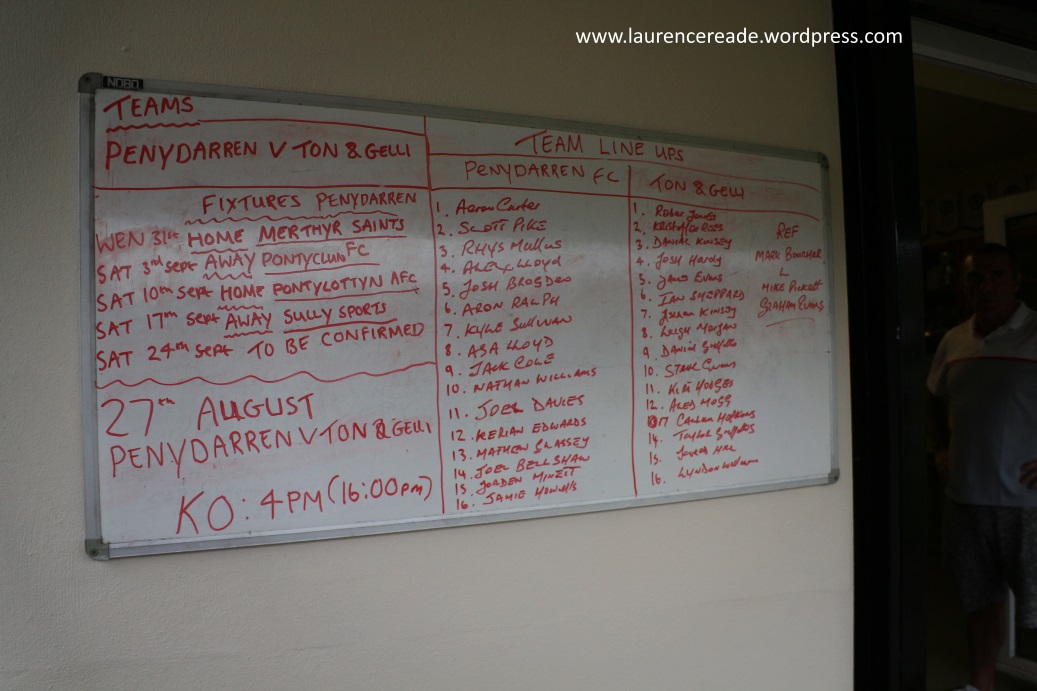 www.laurencereade.wordpress.com
NOBO
TEAMS
PENYDARREN V TON & GELLI
FIXTURES PENYDARREN
WEN 31st HOME MERTHYR SAINTS
SAT 3rd Sept AWAY PONTYCLUN FC
SAT 10th Sept HOME PONTYLOTTYN AFC
SAT 17th Sept AWAY SULLY SPORTS
SAT 24th Sept TO BE CONFIRMED
27th AUGUST
PENYDARREN V TON & GELLI
KO: 4PM (16:00pm)
TEAM LINE UPS
PENYDARREN FC
1. Aaron Carter
2. SCOTT PIKE
3. RHYS
4. ALEX LLOYD
5. JOSH BROGDEN
6. ARON RALPH
7. KYLE SULLIVAN
8. ASA LLOYD
9. JACK COLE
10. NATHAN WILLIAMS
11. JOEL DAVIES
12. KERIAN EDWARDS
13. MATHEW
14. JOEL BELLSHAW
15. JORDEN
16. JAMIE Howells
TON & GELLI
1. Jones
2. REES
3. DANIEL KINSEY
4. Josh Hardy
5. Evans
6. IAN SHEPPARD
7. KINSEY
8. Leigh Morgan
9. Daniel Griffiths
10. STEVE Evans
11. HODGES
12. ALED MOGG
17 Hopkins
14. Taylor Griffiths
15.
16. LYNDON Williams
REF
MARK BOUCHER
L
MIKE
GRAHAM EVANS